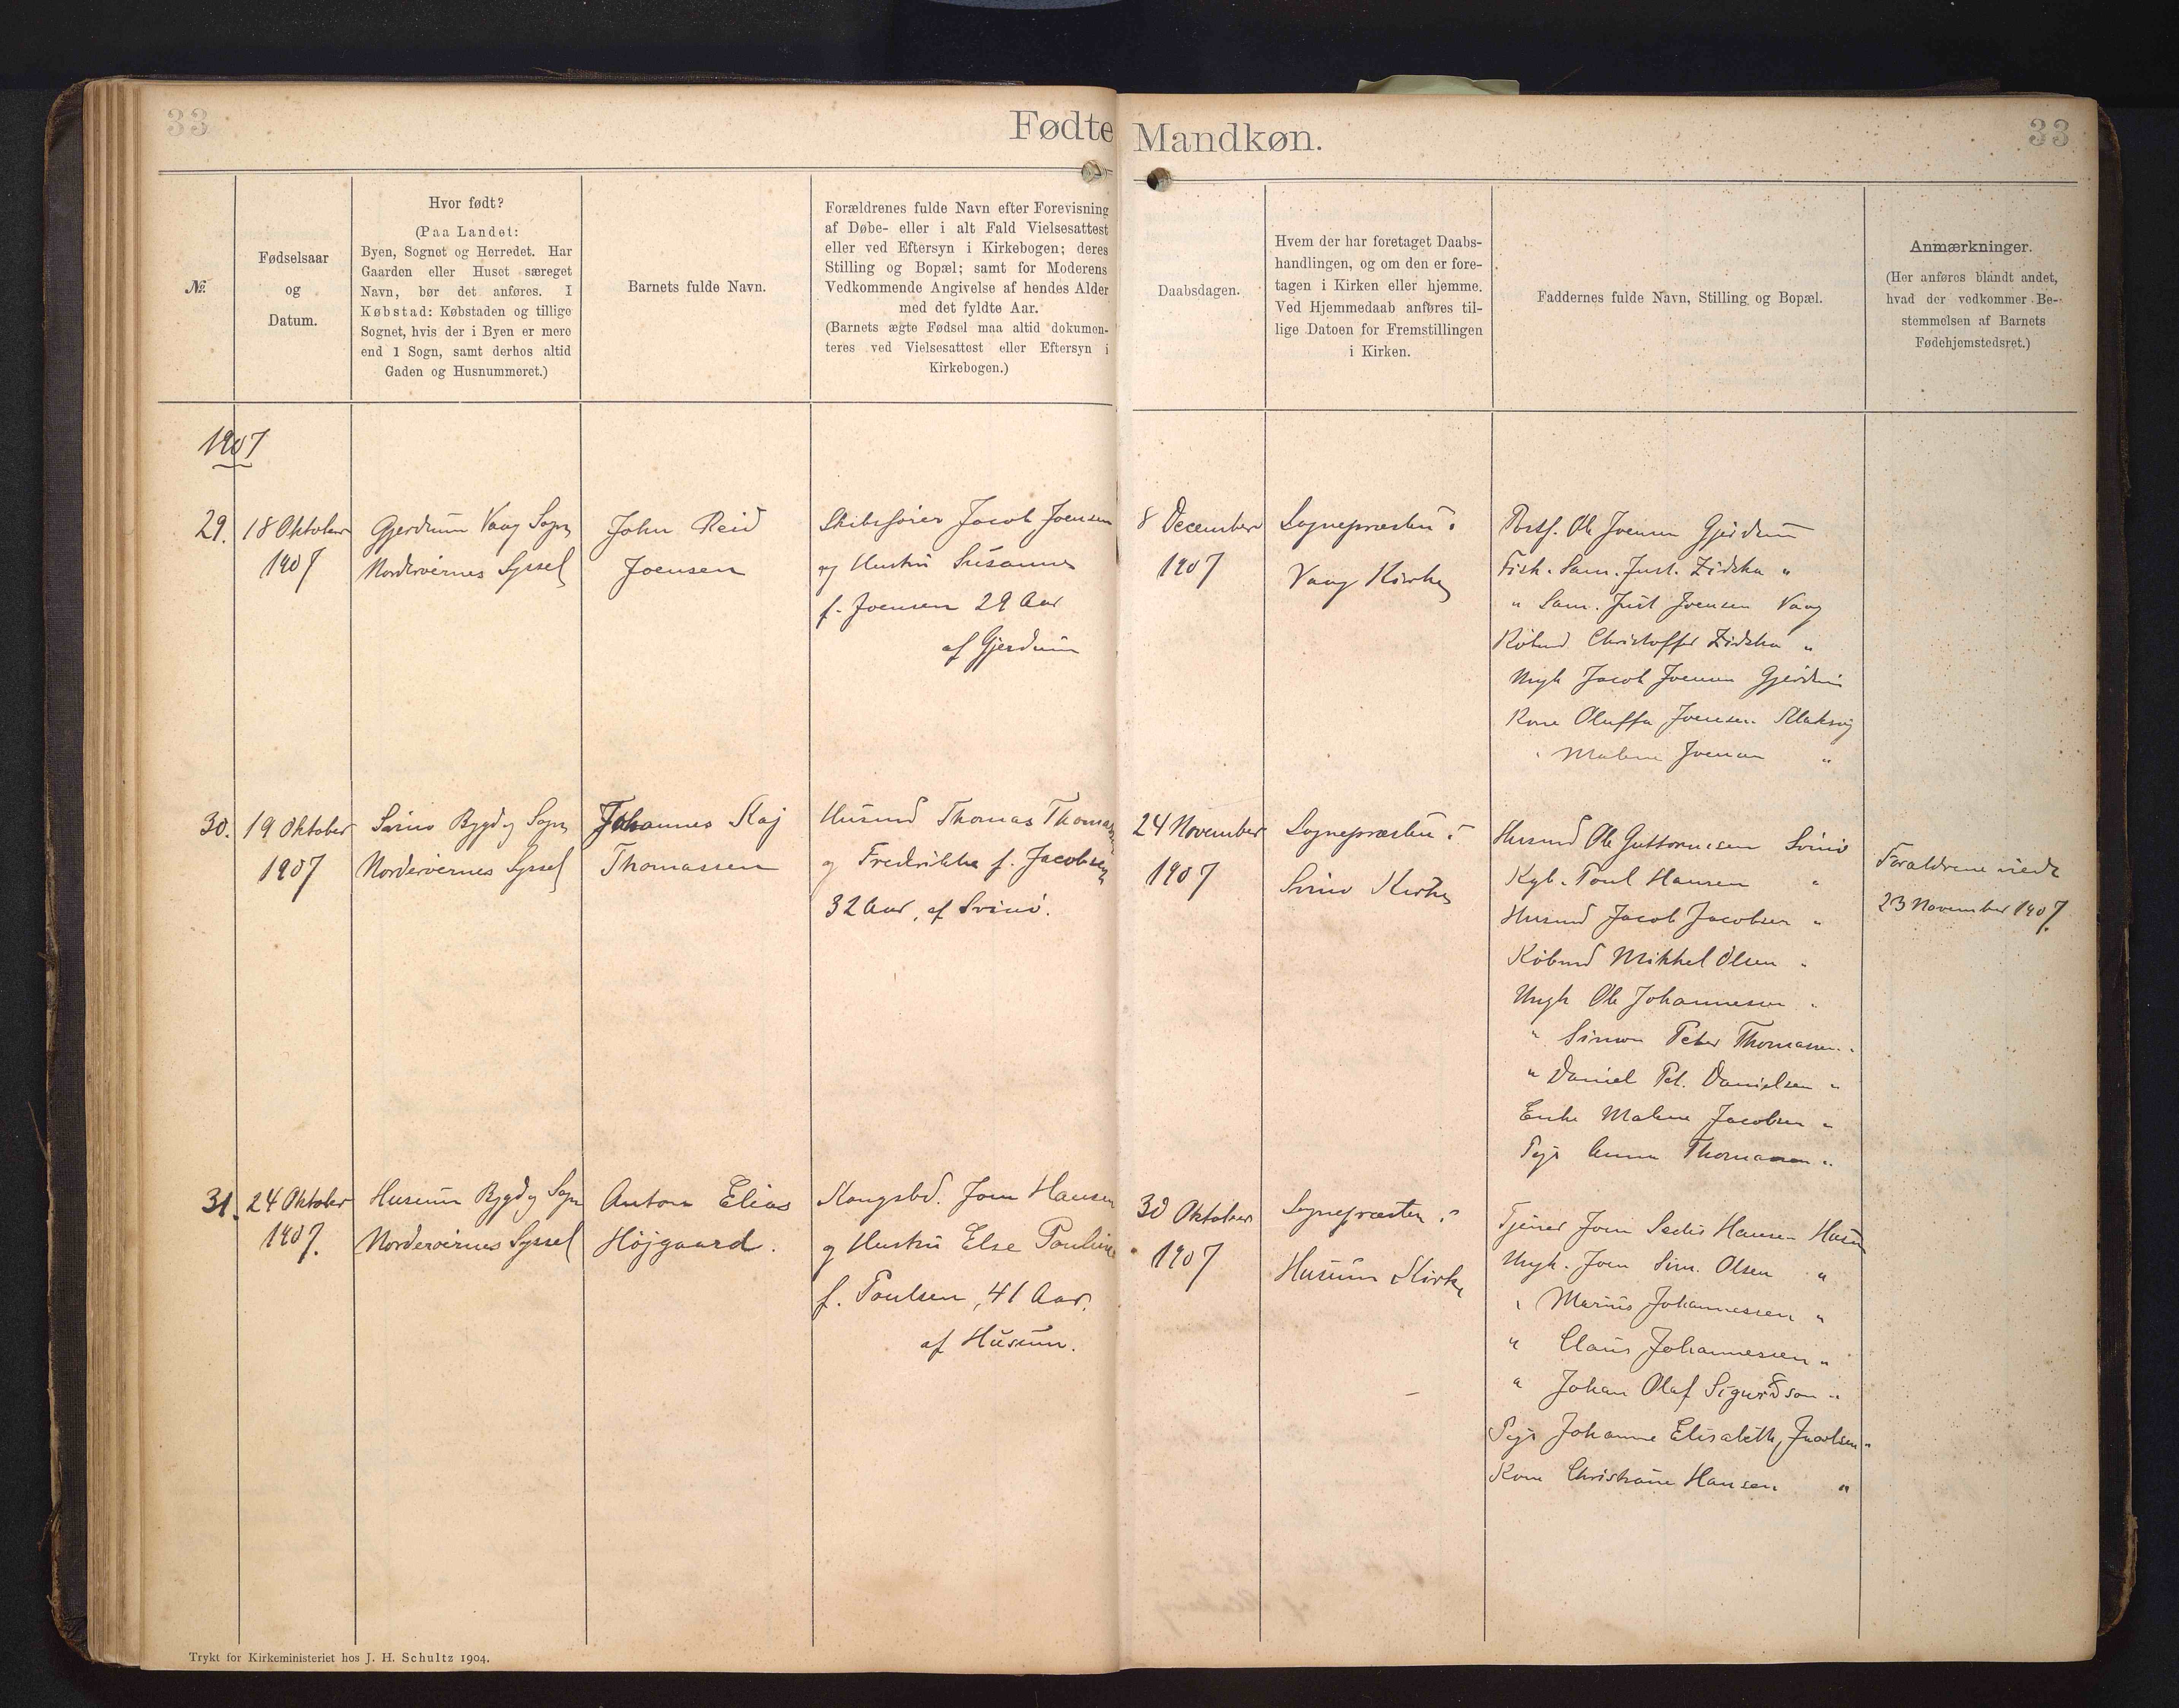 33
Fødte Mandkøn.
33
№.
Fødselsaar
og
Datum.
Hvor født?
(Paa Landet:
Byen, Sognet og Herredet. Har
Gaarden eller Huset særeget
Navn, bør det anføres. I
Købstad: Købstaden og tillige
Sognet, hvis der i Byen er mere
end 1 Sogn, samt derhos altid
Gaden og Husnummeret.)
Barnets fulde Navn.
Forældrenes fulde Navn efter Forevisning
af Døbe- eller i alt Fald Vielsesattest
eller ved Eftersyn i Kirkebogen; deres
Stilling og Bopæl; samt for Moderens
Vedkommende Angivelse af hendes Alder
med det fyldte Aar.
(Barnets ægte Fødsel maa altid dokumen-
teres ved Vielsesattest eller Eftersyn i
Kirkebogen.)
Daabsdagen.
Hvem der har foretaget Daabs-
handlingen, og om den er fore-
tagen i Kirken eller hjemme.
Ved Hjemmedaab anføres til-
lige Datoen for Fremstillingen
i Kirken.
Faddernes fulde Navn, Stilling og Bopæl.
Anmærkninger.
(Her anføres blandt andet,
hvad der vedkommer Be-
stemmelsen af Barnets
Fødehjemstedsret.)
1907
29.
18 Oktober
1907
Gjerdum Vaag Sogn
Norderøernes Syssel
John Reid
Joensen
Skibsfører Jacob Joensen
og Hustru Susanne
f. Joensen 29 Aar
af Gjerdum
8 December
1907
Sognepræsten i
Vaag Kirke
Ole Joensen Gjerdum
Fisk. Sam. Just. Zidska "
" Sam. Just Joensen Vaag
Købmd Christoffer Zidska "
Ungk Jacob Joensen Gjerdum
Kone Oluffa Joensen Klaksvig
" Malene Joensen "
30.
19 Oktober
1907
Svinø Bygd og Sogn
Norderøernes Syssel
Johannes Kaj
Thomassen
Husmd Thomas Thomassen
og Fredrikke f. Jacobsen
32 Aar, af Svinø.
24 November
1907
Sognepræsten i
Svinø Kirke
Husmd Ole Guttormsen Svinø
Kgb. Poul Hansen "
Husmd Jacob Jacobsen "
Købmd Mikkel Olsen "
Ungk Ole Johannesen "
" Simon Peter Thomassen "
" Daniel Pet. Danielsen "
Enke Malene Jacobsen "
Pige Anna Thomassen "
Forældrene viede
23 November 1907.
31.
24 Oktober
1907.
Husum Bygd og Sogn
Norderøernes Syssel
Anton Elias
Højgaard.
Kongsbd. Joen Hansen
og Hustru Else Pouline
f. Poulsen, 41 Aar.
af Husum.
30 Oktober
1907
Sognepræsten i
Husum Kirke
Tjener Joen Hansen Husum
Ungk. Joen Sim. Olsen "
" Marius Johannessen "
" Claus Johannessen "
" Johan Olaf Sigurdson "
Pige Johanne Elisabeth Jacobsen "
Kone Christiane Hansen "
Trykt for Kirkeministeriet hos J. H. Schultz 1904.